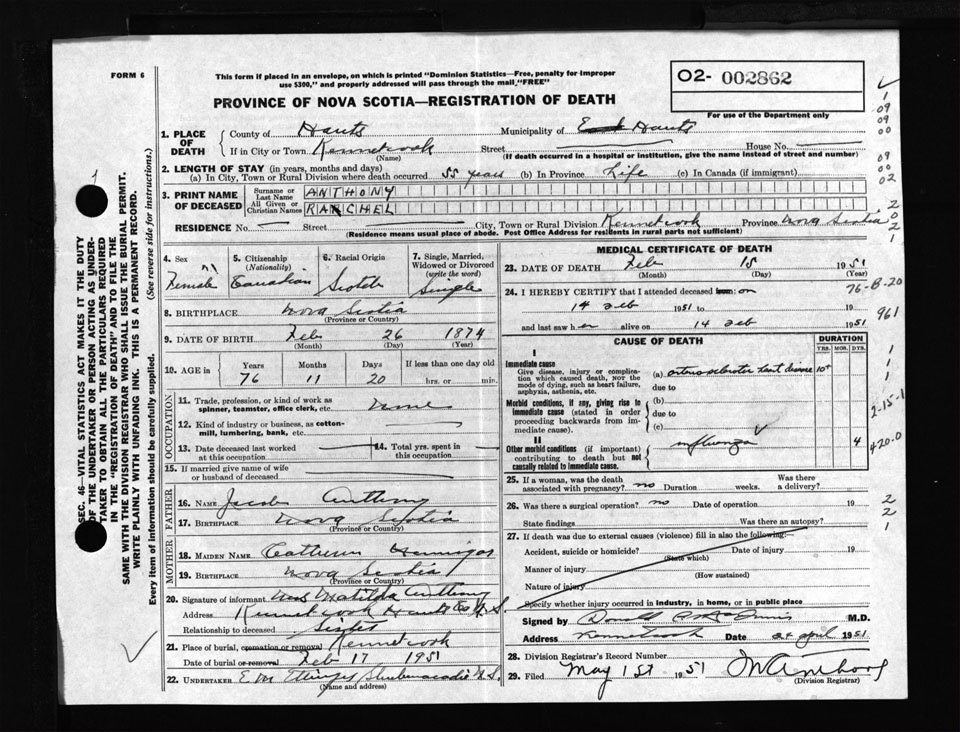 FORM 6
This form if placed in an envelope, on which is printed "Dominion Statistics—Free, penalty for improper
use $300," and properly addressed will pass through the mail "FREE"
O2- 002862
For use of the Department only
PROVINCE OF NOVA SCOTIA—REGISTRATION OF DEATH
1. PLACE OF DEATH { County of Hants Municipality of East Hants
If in City or Town Kennetcook Street House No.
(Name) (If death occurred in a hospital or institution, give the name instead of street and number)
2. LENGTH OF STAY (in years, months and days)
(a) In City, Town or Rural Division where death occurred 55 years (b) In Province Life (c) In Canada (if immigrant)
3. PRINT NAME OF DECEASED { Surname or Last Name ANTHONY
All Given or Christian Names RACHEL
RESIDENCE No. Street City, Town or Rural Division Kennetcook Province Nova Scotia
(Residence means usual place of abode. Post Office Address for residents in rural parts not sufficient)
4. Sex Female
5. Citizenship (Nationality) Canadian
6. Racial Origin Scotch
7. Single, Married, Widowed or Divorced (write the word) Single
8. BIRTHPLACE Nova Scotia
(Province or Country)
9. DATE OF BIRTH Feb 26 1874
(Month) (Day) (Year)
10. AGE in { Years Months Days If less than one day old
76 11 20 hrs. or min.
OCCUPATION
11. Trade, profession, or kind of work as
spinner, teamster, office clerk, etc. none
12. Kind of industry or business, as cotton-
mill, lumbering, bank, etc.
13. Date deceased last worked at this occupation 14. Total yrs. spent in this occupation
15. If married give name of wife
or husband of deceased
FATHER
16. NAME Jacob Anthony
17. BIRTHPLACE Nova Scotia
(Province or Country)
MOTHER
18. MAIDEN NAME
19. BIRTHPLACE Nova Scotia
(Province or Country)
20. Signature of informant Mrs Matilda Anthony
Address Kennetcook Hants Co N.S.
Relationship to deceased Sister
21. Place of burial, cremation or removal Kennetcook
Date of burial or removal Feb 17 1951
22. UNDERTAKER Shubenacadie N.S.
(Name and address)
MEDICAL CERTIFICATE OF DEATH
23. DATE OF DEATH Feb 15 1951
(Month) (Day) (Year)
24. I HEREBY CERTIFY that I attended deceased from: on
14 Feb 1951 to 19
and last saw her alive on 14 Feb 1951
CAUSE OF DEATH
DURATION
YRS. MOS. DYS.
I
Immediate cause
Give disease, injury or complica-
tion which caused death, Not the
mode of dying, such as heart failure,
asphyxia, asthenia, etc.
(a) arteriosclerotic heart disease 10+
due to
Morbid conditions, if any, giving rise to
immediate cause (stated in order
proceeding backwards from im-
mediate cause.
(b)
due to
(c)
II
Other morbid conditions (if important)
contributing to death but not
causally related to immediate cause.
influenza 4
25. If a woman, was the death
associated with pregnancy? no Duration weeks. Was there a delivery?
26. Was there a surgical operation? no Date of operation 19
State findings Was there an autopsy?
27. If death was due to external causes (violence) fill in also the following:
Accident, suicide or homicide? Date of injury 19
(State which)
Manner of injury
(How sustained)
Nature of injury
Specify whether injury occurred in industry, in home, or in public place
Signed by M.D.
Address Kennetcook Date 24 April 1951
28. Division Registrar's Record Number
29. Filed May 1st 1951
(Division Registrar)
SEC. 46—VITAL STATISTICS ACT MAKES IT THE DUTY
OF THE UNDERTAKER OR PERSON ACTING AS UNDER-
TAKER TO OBTAIN ALL THE PARTICULARS REQUIRED
IN THE "REGISTRATION OF DEATH" AND TO FILE THE
SAME WITH THE DIVISION REGISTRAR WHO SHALL ISSUE THE BURIAL PERMIT.
WRITE PLAINLY WITH UNFADING INK. THIS IS A PERMANENT RECORD.
Every item of information should be carefully supplied. (See reverse side for instructions.)
1
09
09
00
09
00
02
2
0
2
1
76-8-20
961
1
1
1
2-15-1
420.0
2
2
1